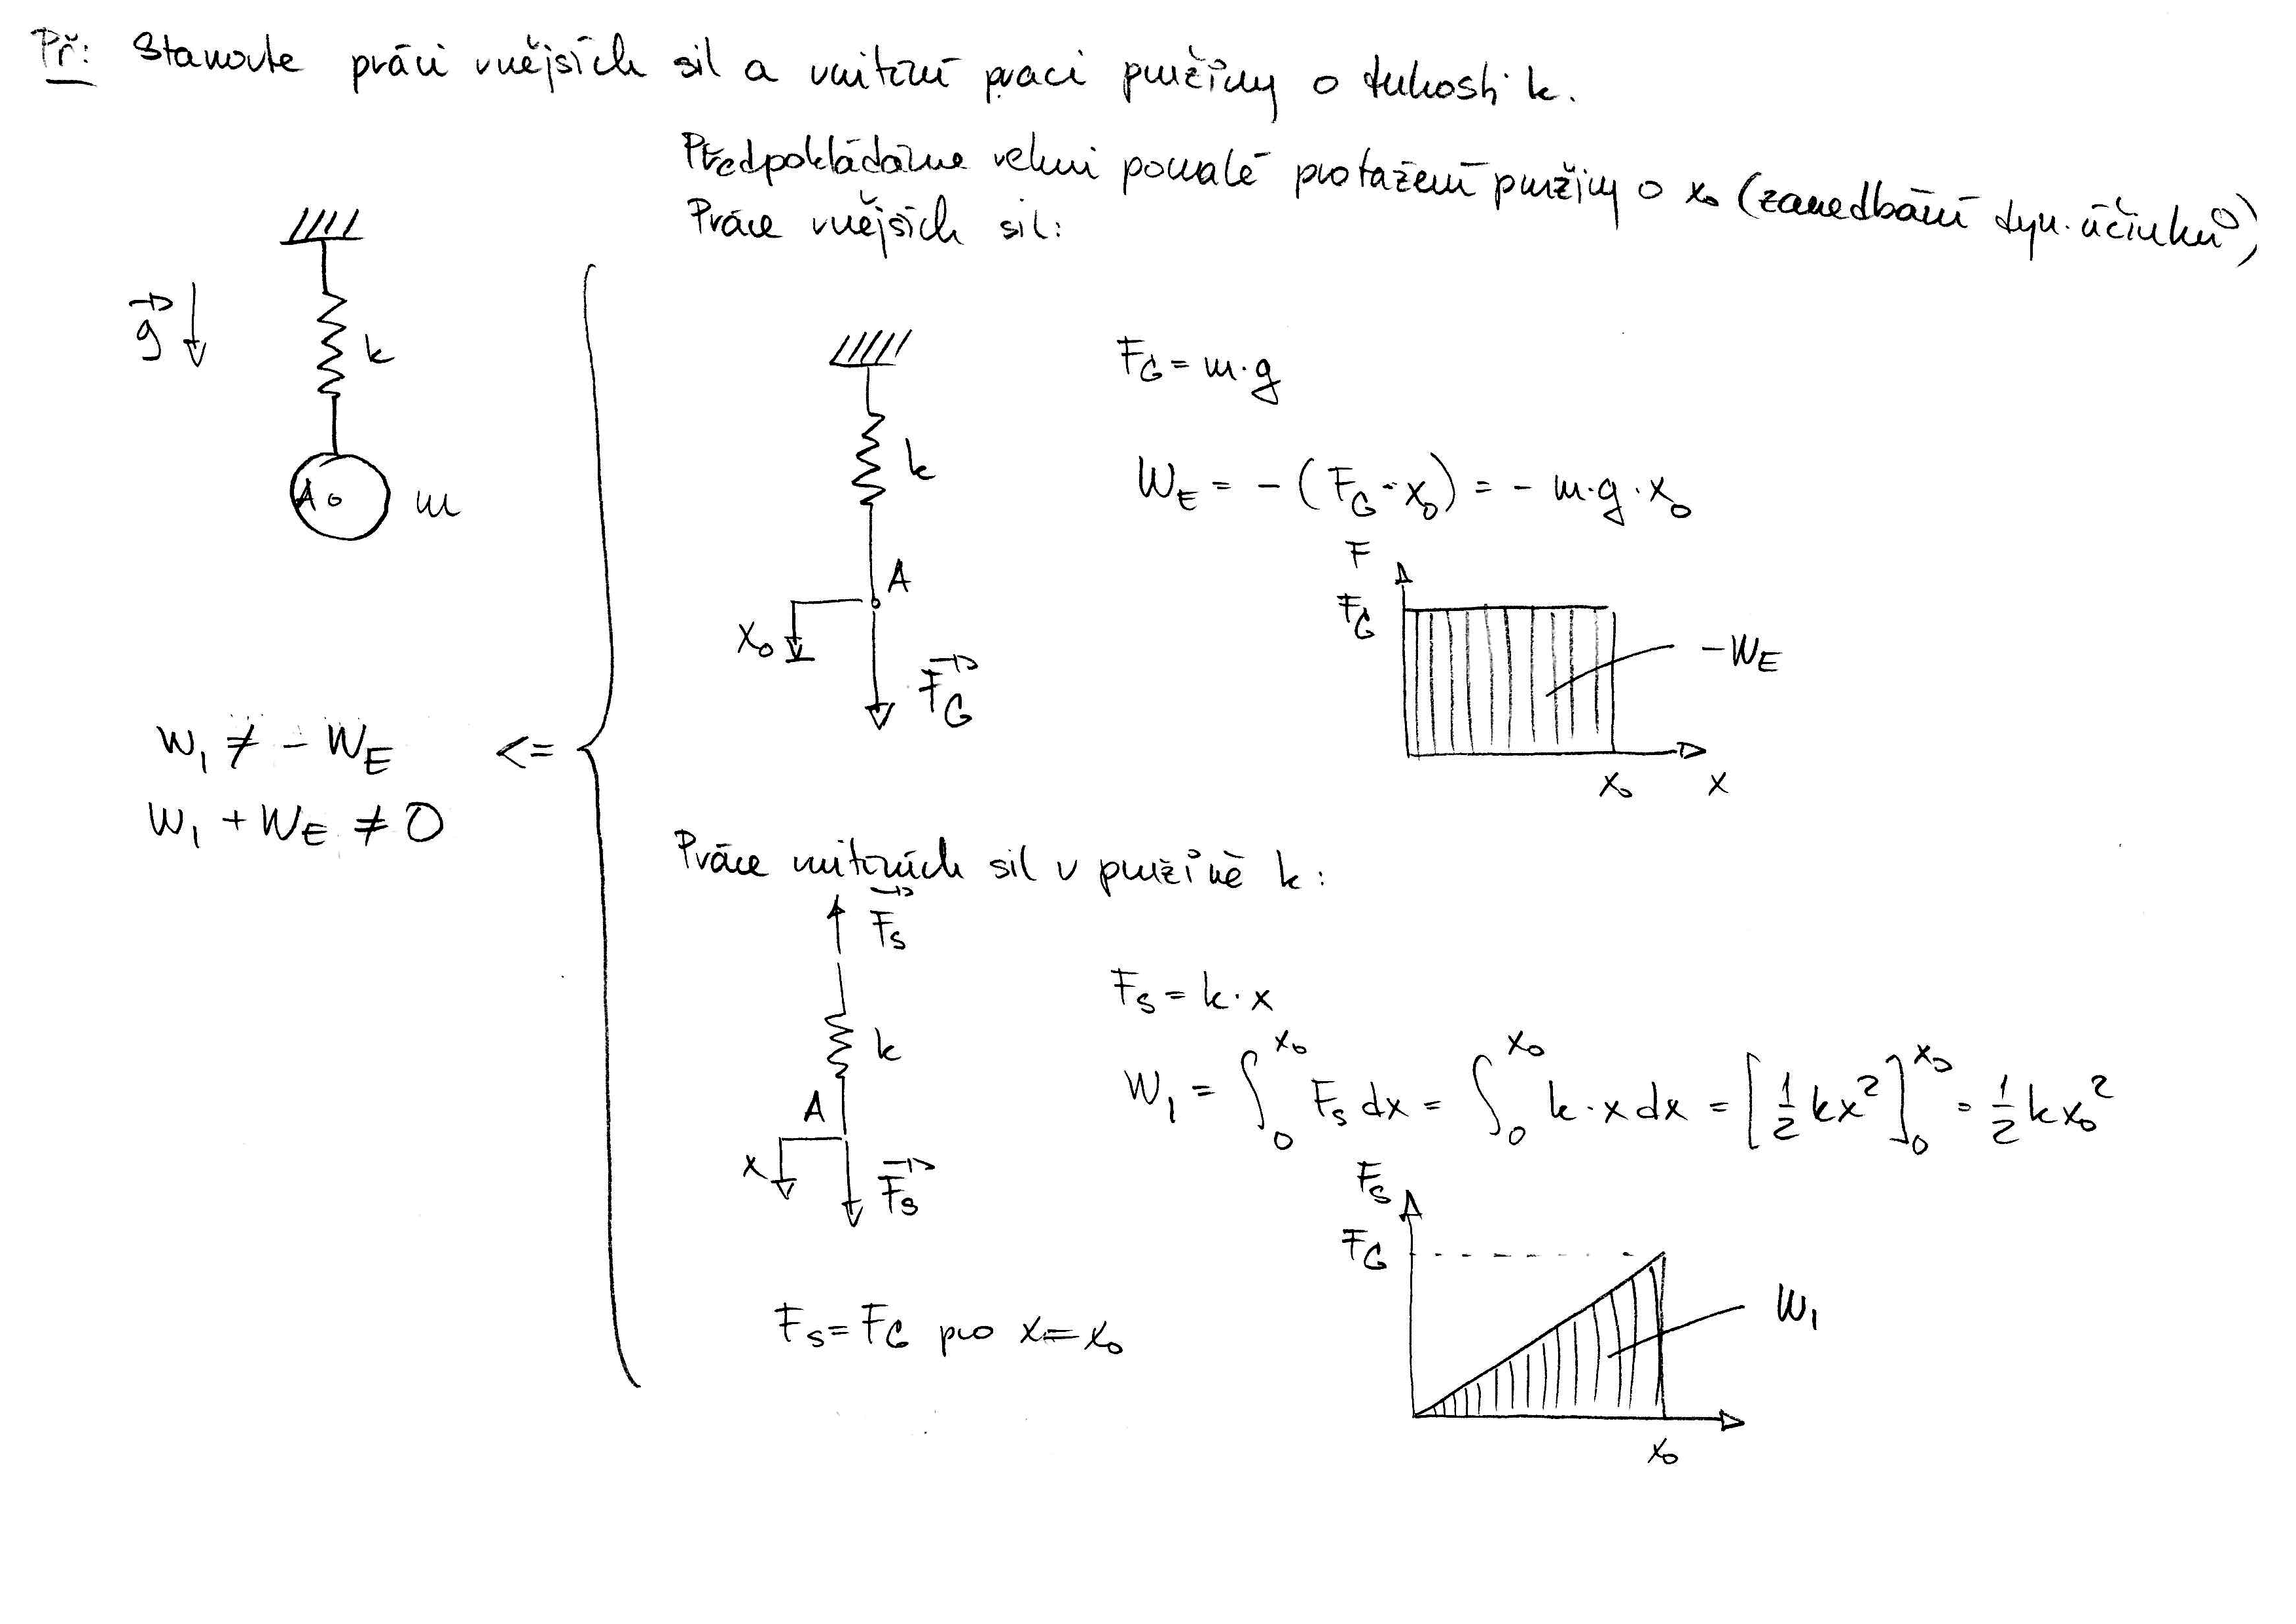 Př: Stanovte práci vnějších sil a vnitřní praci pružiny o tuhosti k.
Předpokládáme velmi pomalé protažení pružiny o x₀ (zanedbání dyn. účinků)
Práce vnějších sil:
g
k
A
m
k
A
x₀
F_G
F_G = m·g
W_E = - (F_G · x₀) = - m·g·x₀
F
F_G
-W_E
x₀ x
W_I ≠ - W_E <=
W_I + W_E ≠ 0
Práce vnitřních sil v pružině k:
F_S
k
A
x
F_S
F_S = F_G pro x = x₀
F_S = k·x
W_I = ∫₀^x₀ F_S dx = ∫₀^x₀ k·x dx = [½ kx²]₀^x₀ = ½ kx₀²
F_S
F_G
W_I
x₀